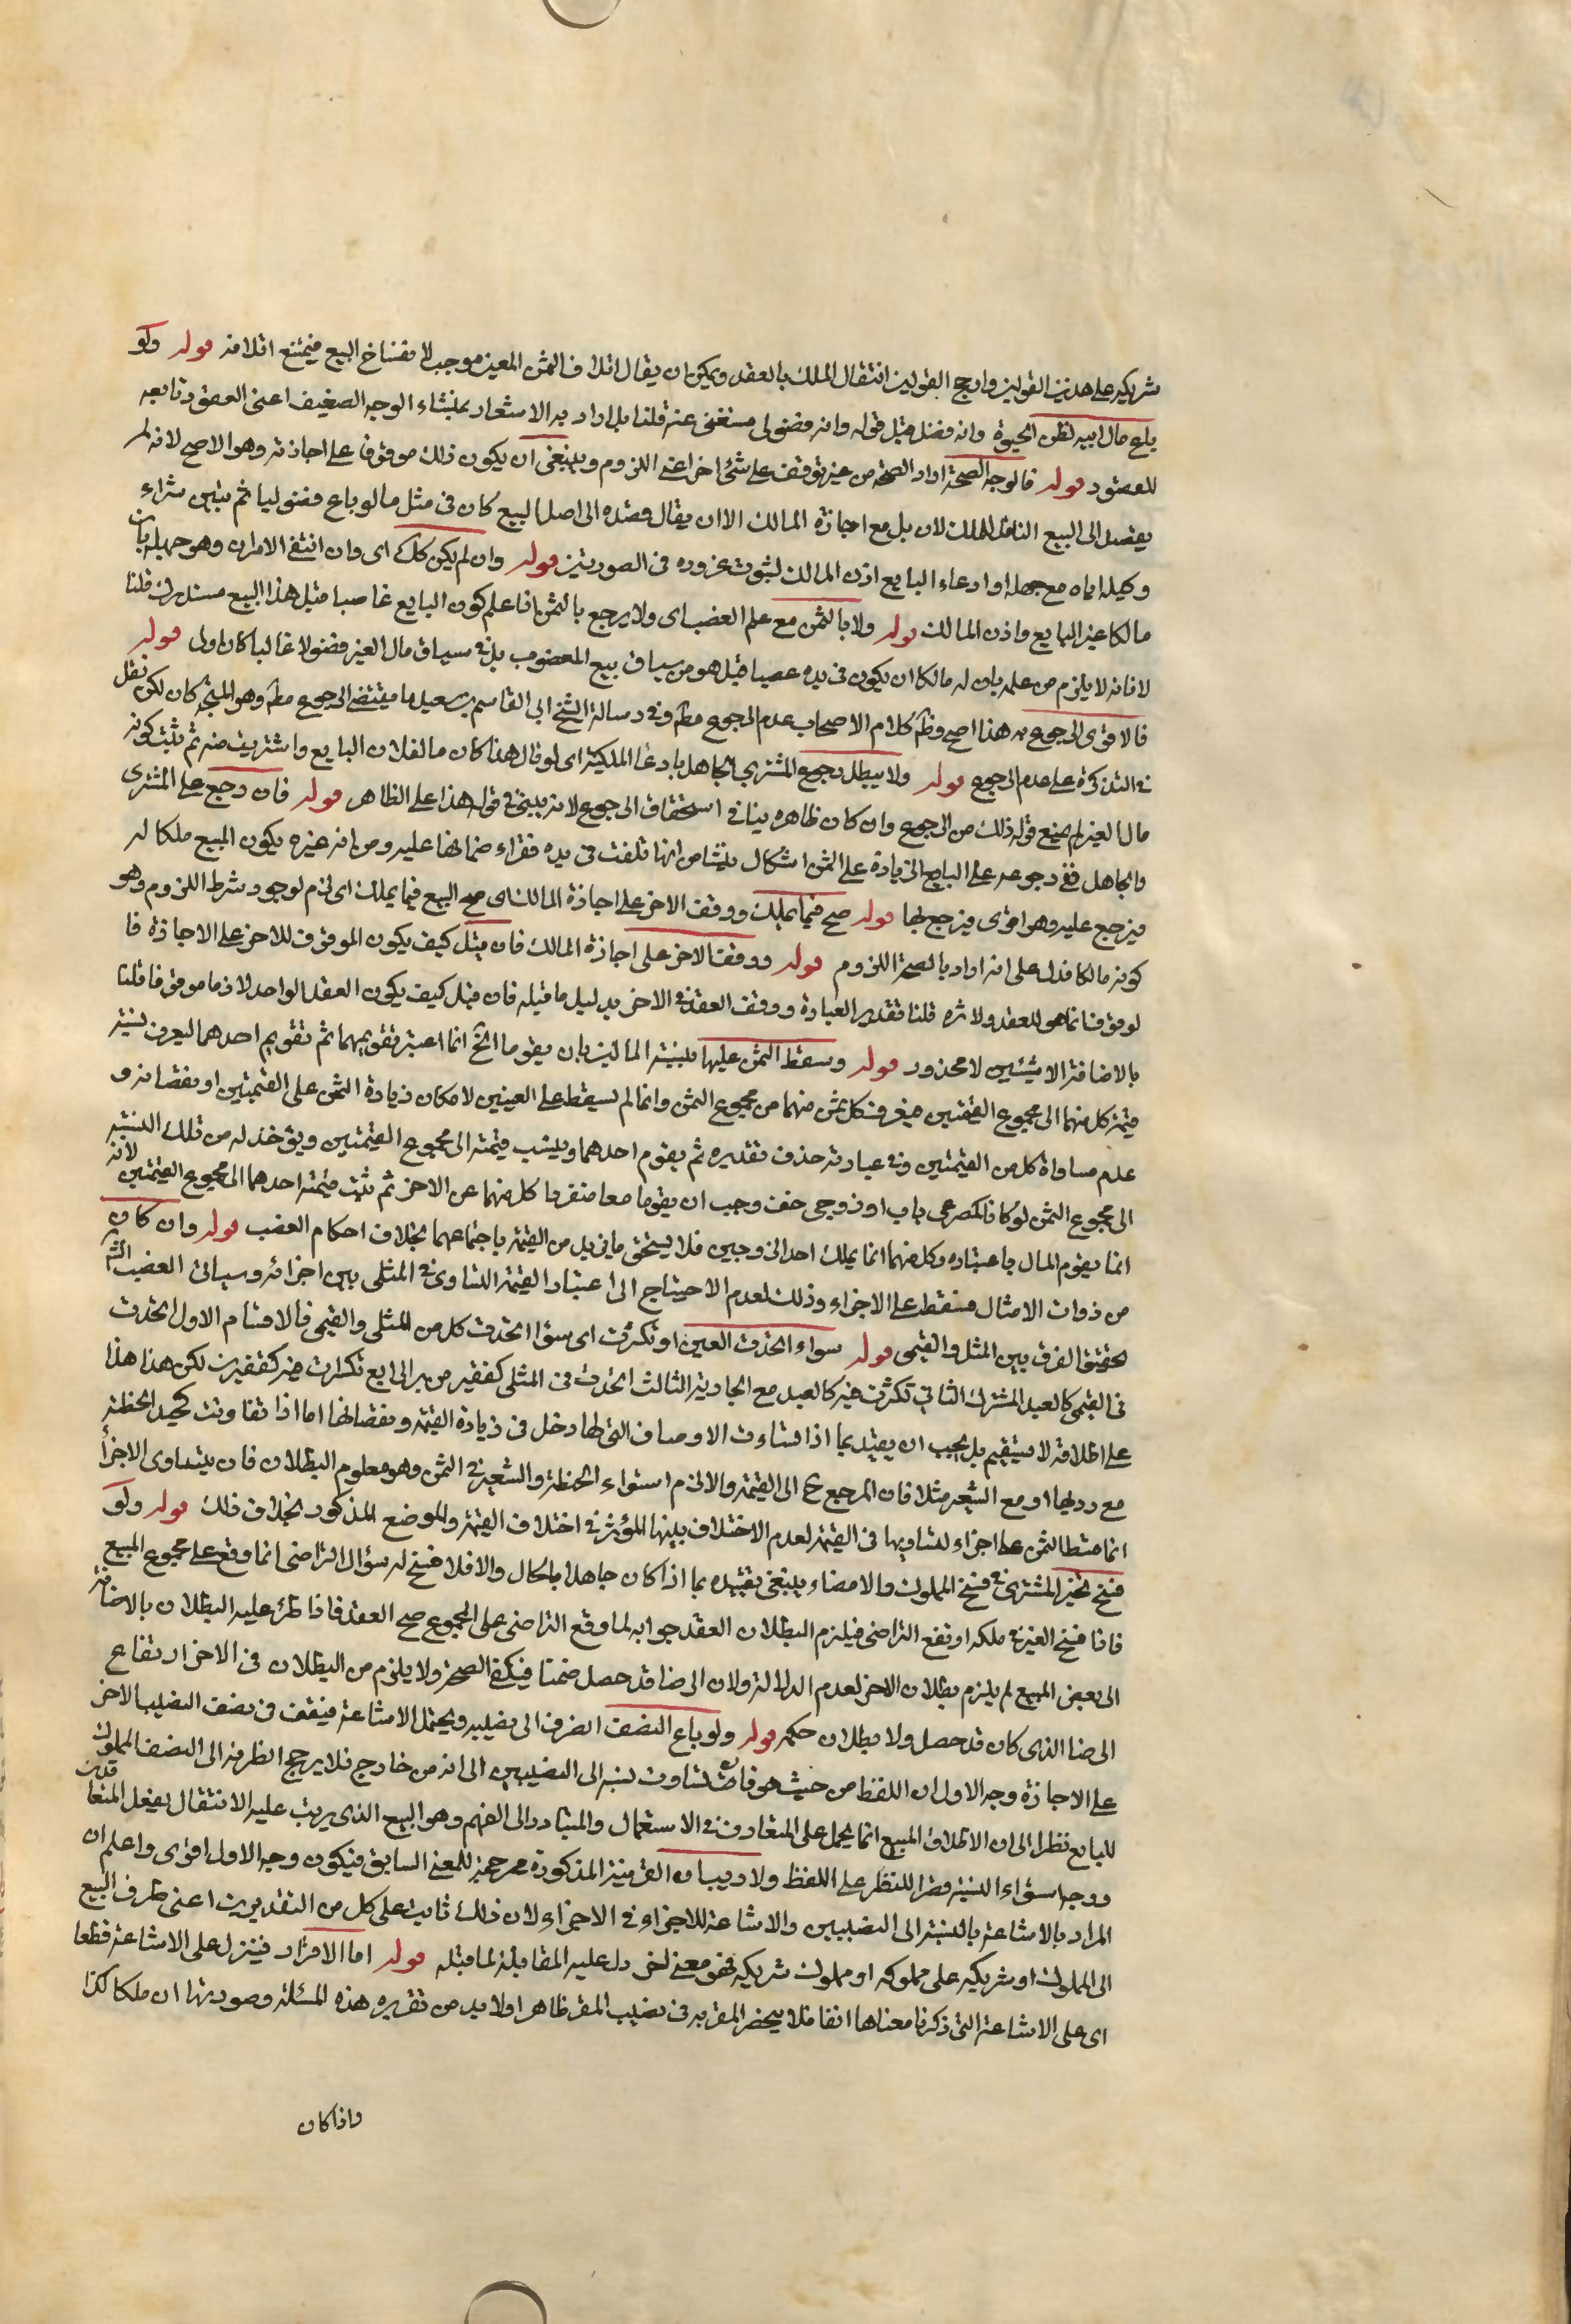 شريكيه على هذين القولين وارجح القولين انتقال الملك بالعقد ويمكن ان يقال اتلاف الثمن المعين موجب لانفساخ البيع فيمتنع اتلافه قوله ولو
باع مال ابيه لظن الحيوة وانه فضل قيل قوله وانه فضولى مستغنى عنه قلنا بل اراد به الاشعار بمنشاء الوجه الضعيف اعنى العقود تابعه
للعقود قوله فالوجه الصحة اراد الصحة من غير توقف على شئ اخر اعنى اللزوم وينبغى ان يكون ذلك موقوفا على اجازته وهو الاصح لانه لم
يقصد الى البيع الناقل للملك لان بل مع اجازة المالك الا ان يقال قصده الى اصل البيع كان فى مثل ما لو باع فضوليا ثم تبين شراء
وكيله اياه مع جهله او ادعاء البايع اذن المالك لثبوت غروره فى الصورتين قوله وان لم يكن كك اى وان انتفى الامران وهو جهله بان
مالكا غير البايع واذن المالك قوله ولا بالثمن مع علم الغصب اى ولا يرجع بالثمن اذا علم كون البايع غاصبا قيل هذا البيع مستدرك قلنا
لا فانه لا يلزم من علمه بان له مالكا ان يكون فى يده غصبا قيل هو من سياق بيع المغصوب بل فى سياق مال الغير فضولا غالبا كان اولى قوله
فالاقوى الرجوع به هذا اصح وظ كلام الاصحاب عدم الرجوع مط وفى رسالة الشيخ ابى القاسم بن سعيد ما يقتضى الرجوع مط وهو المتجه كان لكن نقل
فى التذكرة على عدم الرجوع قوله ولا يبطل رجوع المشترى الجاهل بادعا الملكية اى لو قال هذا كان ما لفلان البايع واشتريت منه ثم ثبت كونه
مال الغير لم يمنع قوله ذلك من الرجوع وان كان ظاهره ينافى استحقاق الرجوع لانه يبنى فى قوله هذا على الظاهر قوله فان رجع على المشترى
والجاهل ففى رجوعه على البايع الزيادة على الثمن اشكال ينشا من انها تلفت فى يده فقراء ضمانها عليه ومن انه غيره يكون المبيع ملكا له
فيرجع عليه وهو اقوى فيرجع بها قوله صح فيما يملك ووقف الاخر على اجازة المالك اى صح البيع فيما يملك اى لزم لوجود شرط اللزوم وهو
كونه مالكا فدل على انه اراد بالصحة اللزوم قوله ووقف الاخر على اجازة المالك فان قيل كيف يكون الموقوف للاخر على الاجازة فا
لوقوف انما هو للعقد ولاثره قلنا تقدير العبارة ووقف العقد فى الاخر بدليل ما قيله فان قيل كيف يكون العقد الواحد لازما موقوفا قلنا
بالاضافة الى شيئين لا محذور قوله وسقط الثمن عليها بنسبة المالين بان يقوما الخ انما اعتبر تقويمهما ثم تقويم احدهما ليعرف نسبة
قيمة كل منهما الى مجموع القيمتين فيعرف كل ثمن منهما من مجموع الثمن وانما لم يسقط على العينين لامكان زيادة الثمن على القيمتين او نقصانه و
عدم مساواة كل من القيمتين وفى عبارته حذف تقديره ثم يقوم احدهما وينسب قيمته الى مجموع القيمتين ويؤخذ له من تلك النسبة
الى مجموع الثمن لو كانا كمصرعى باب او زوجى خف وجب ان يقوما معا منفردا كل منهما عن الاخر ثم تثبت قيمة احدهما الى مجموع القيمتين لانه
انما يقوم المال باعتباره وكل منهما انما يملك احد الزوجين فلا يستحق ما يزيد من القيمة باجتماعهما بخلاف احكام الغصب قوله وان كان
من ذوات الامثال فسقط على الاجزاء وذلك لعدم الاحتياج الى اعتبار القيمة التساوى فى المثلى بين اجزائه وسياتى الغصب انش
تحقيق الفرق بين المثل والقيمى قوله سواء اتحدت العين او تكثرت اى سؤا اتحدت كل من المثلى والقيمى فالاقسام الاول اتحدت
فى القيمى كالعبد المشترك الثانى تكثرت فيه كالعبد مع الجارية الثالث اتحدت فى المثلى كقفيز من بر الرابع تكثرت فيه كقفيزين لكن هذا هذا
على اطلاقه لا يستقيم بل يجب ان يقيد بما اذا تساوت الاوصاف التى لها دخل فى زيادة القيمة ونقصانها اما اذا تفاوتت كجيد الحنطة
مع رديها او مع الشعير مثلا فان المرجع ح الى القيمة والا لزم استواء الحنطة والشعير فى الثمن وهو معلوم البطلان فان تساوى الاجزأ
انما قسط الثمن على اجزاء لتساويها فى القيمة لعدم الاختلاف بينها المؤثر فى اختلاف القيمة والموضع المذكور بخلاف ذلك قوله ولو
فسخ تخير المشترى فى فسخ المملوك والامضاء ينبغى تقييده بما اذا كان جاهلا بالحال والا فلا فسخ له سؤال التراضى انما وقع على مجموع المبيع
فاذا فسخ الغير فى ملكه ارتفع التراضى فيلزم البطلان العقد جوابه لما وقع التراضى على المجموع صح العقد فاذا طرء عليه البطلان بالاضافة
الى بعض المبيع لم يلزم بطلان الاخر لعدم الدلالة ولان الرضا قد حصل ضمنا فيكفى الصحة ولا يلزم من البطلان فى الاخر ارتفاع
الرضا الذى كان قد حصل ولا بطلان حكمه قوله ولو باع النصف انصرف الى نصيبه ويحتمل الاشاعة فيقف فى نصف النصيب الاخر
على الاجازة وجه الاول ان اللفظ من حيث هو فان تساوت نسبة الى النصيبين الى انه من خارج فلا يرجح انظر منه الى النصف المملوك
للبايع نظرا الى ان الاطلاق المبيع انما يحمل على المتعارف فى الاستعمال والمتبادر الى الفهم وهو البيع الذى يرتب عليه الانتقال بفعل المتعاقدين
ووجه استواء النسبة قصرا للنظر على اللفظ ولا ريب ان القرينة المذكورة مرجحة للمعنى السابق فيكون وجه الاول اقوى واعلم ان
المراد بالاشاعة بالنسبة الى النصيبين والاشاعة للاجزاء فى الاجزاء لان ذلك ثابت على كل من التقديرين اعنى طرف البيع
الى المملوك او شريكه على مملوكه او مملوك شريكه فهو معنى اخر دل عليه المقابلة لما قبله قوله اما الاقرار فينزل على الاشاعة قطعا
اى على الاشاعة التى ذكرنا معناها انفا فلا ينحصر المقر به فى نصيب المقر ظاهرا ولا بد من تقرير هذه المسئلة وصورتها ان ملكا لك‍ذا
واذا كان